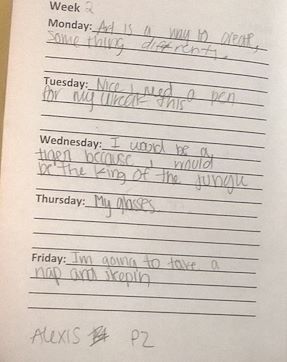 Week 2
Monday: Art is a way to create,
some thing differently.
Tuesday: Nice i need a pen
for my this
Wednesday: I would be a
tiger because i would
be the king of the jungle
Thursday: My glasses
Friday: Im going to take a
nap and
ALEXIS P2